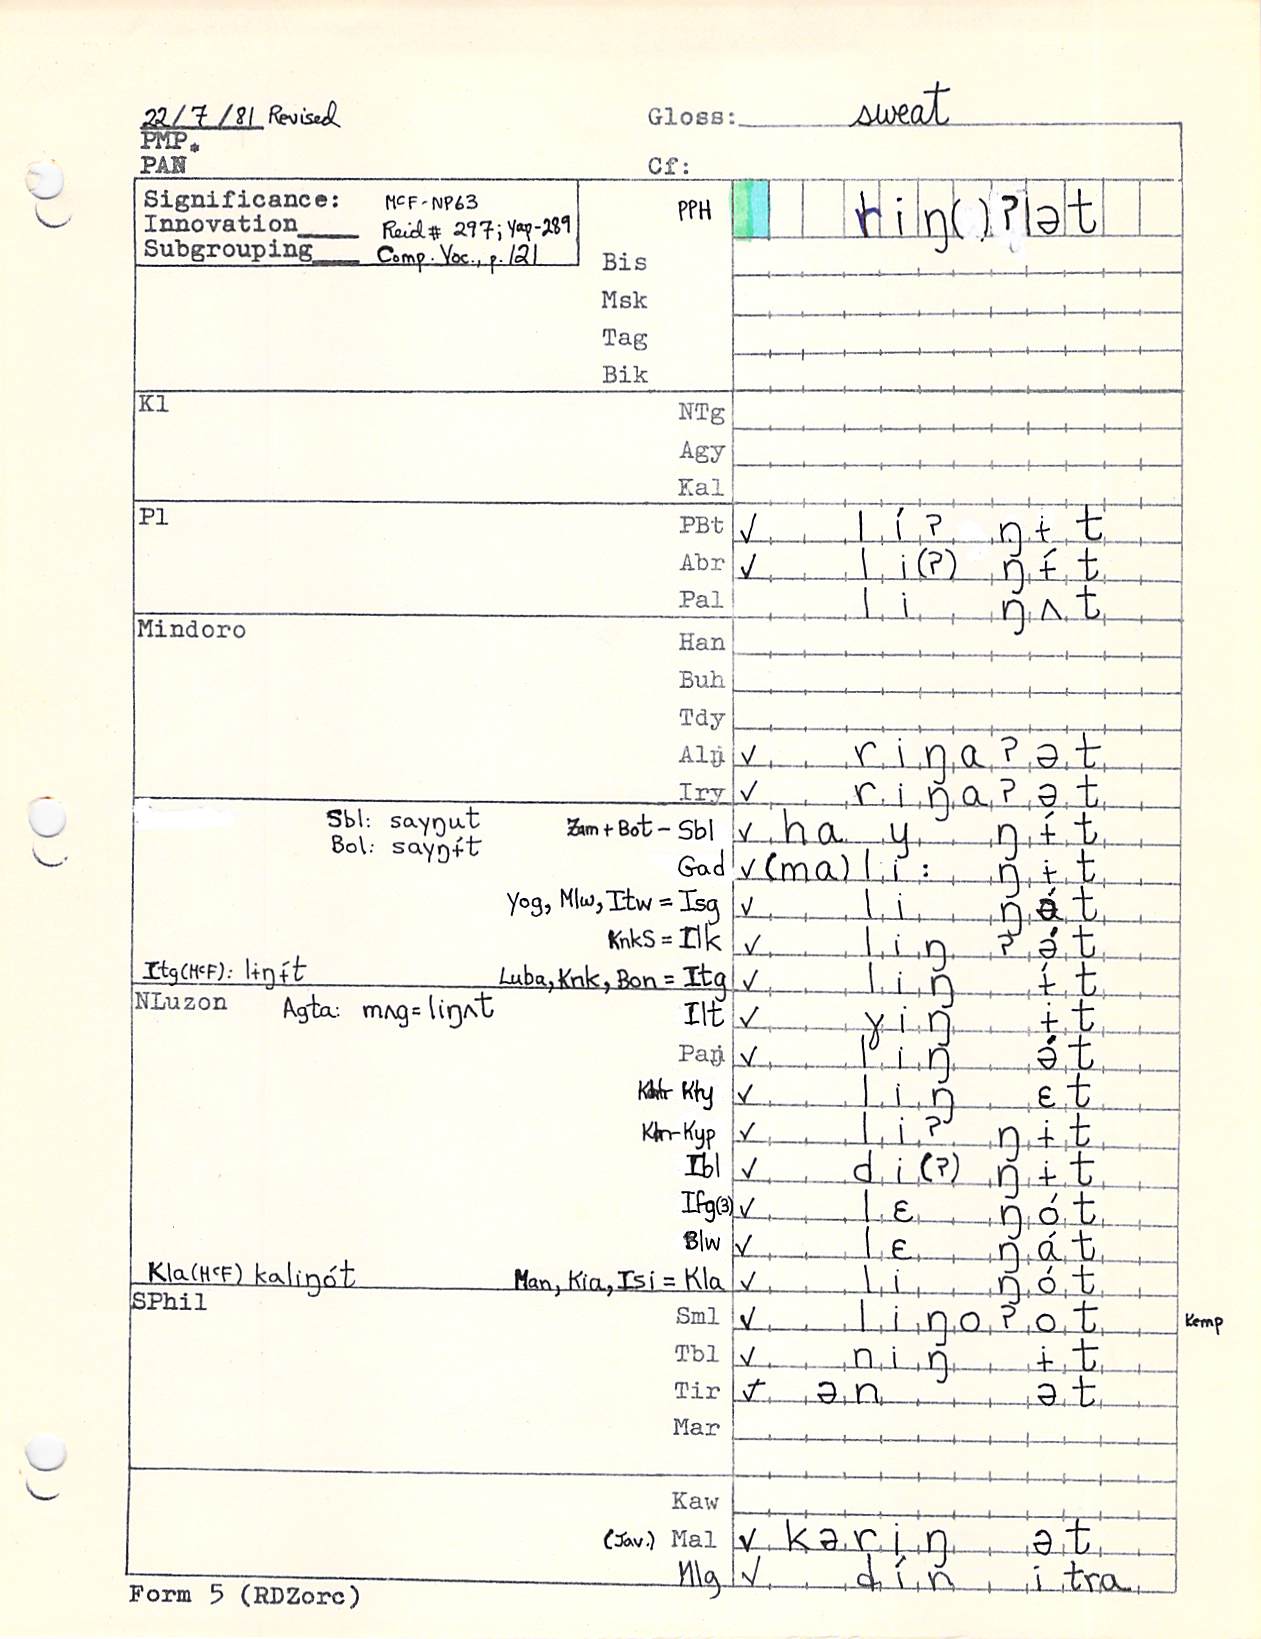 22/7/81 Revised
Gloss: sweat
PMP.
PAN
Cf:
Significance: McF-NP63
Innovation____ Reid# 297; Yap-289
Subgrouping____ Comp. Voc., p. 121
PPH riŋ()ʔət
Bis
Msk
Tag
Bik
Kl
NTg
Agy
Kal
Pl
PBt ✓ líʔ ŋɨt
Abr ✓ li(ʔ) ŋɨ́t
Pal li ŋʌt
Mindoro
Han
Buh
Tdy
Alŋ ✓ riŋaʔət
Iry ✓ riŋaʔət
Sbl: sayŋut
Zam + Bot - Sbl ✓ hay ŋɨ́t
Bol: sayŋɨ́t
Gad ✓ (ma)li: ŋɨt
Yog, Mlw, Itw = Isg ✓ li ŋát
KnkS = Ilk ✓ liŋ ʔə́t
Itg (McF): lɨŋɨ́t
Luba, Knk, Bon = Itg ✓ liŋ ɨ́t
NLuzon
Agta: mʌg=liŋʌt
Ilt ✓ ɣiŋ ɨt
Paŋ ✓ liŋ ə́t
Kty ✓ liŋ ɛt
Kyp ✓ liʔ ŋɨt
Ibl ✓ di(ʔ) ŋɨt
Ifg(3) ✓ lɛ ŋót
Blw ✓ lɛ ŋát
Kla (McF) kaliŋót
Man, Kia, Isi = Kla ✓ li ŋót
SPhil
Sml ✓ liŋoʔot Kemp
Tbl ✓ niŋ ɨt
Tir ən ət
Mar
Kaw
(Jav.) Mal ✓ kəriŋ ət
Mlg ✓ dín itra
Form 5 (RDZorc)